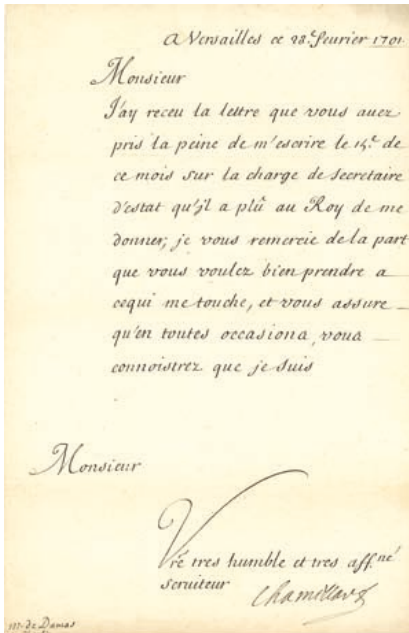 A Versailles ce 28.e feurier 1701
Monsieur
J'ay receu la lettre que vous auez
pris la peine de m'escrire le 15.e de
ce mois sur la charge de secretaire
d'estat qu'jl a plû au Roy de me
donner; je vous remercie de la part
que vous voulez bien prendre a
cequi me touche, et vous assure
qu'en toutes occasions, vous
connoistrez que je suis
Monsieur
Vre tres humble et tres aff.né
seruiteur
Chamillart
m. de Damas